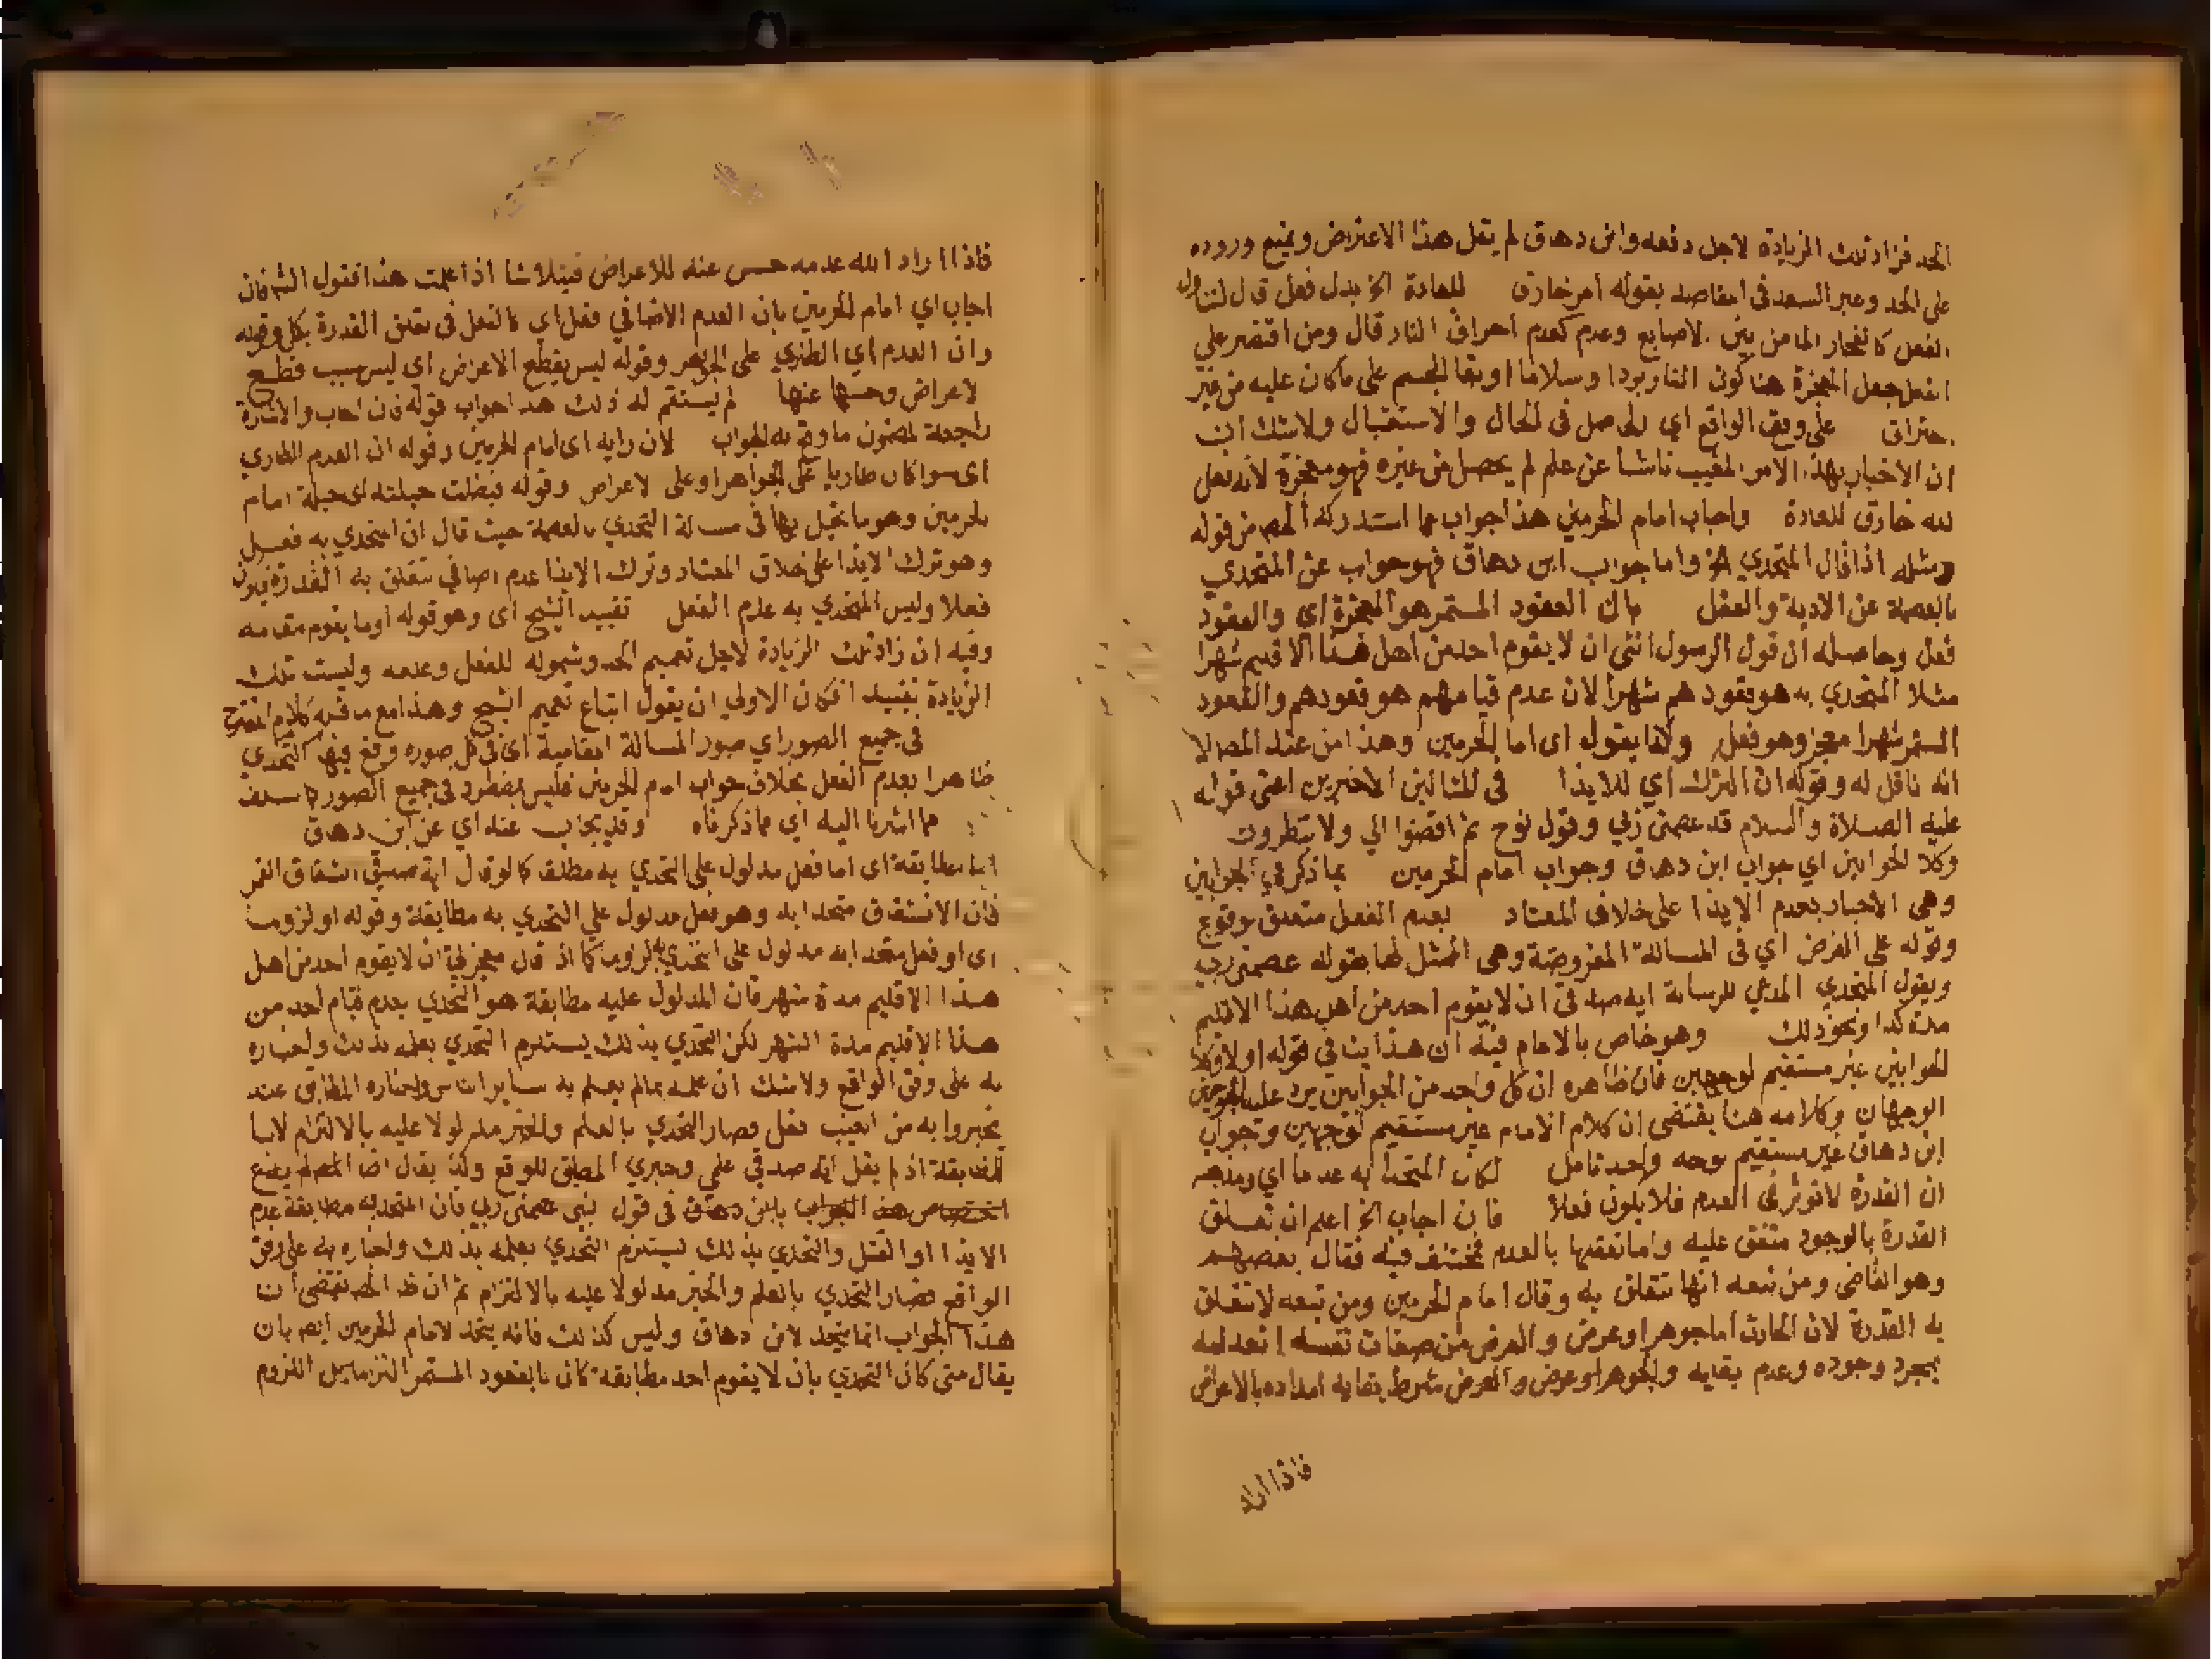 الحد فزاد تلك الزيادة لاجل دفعه وابن دهاق لم يقل هذا الاعتراض ويمنع وروده
على الحد وعبر السعد في المقاصد بقوله امر خارق للعادة الخ بدل فعل قال لتناول
الفعل كانفجار الما من بين الاصابع وعدم كعدم احراق النار قال ومن اقتصر علي
الفعل جعل المعجزة هنا كون النار بردا وسلاما او بقا الجسم على ما كان عليه من غير
احتراق على وفق الواقع اي الحاصل في الحال والاستقبال ولا شك ان
ان الاخبار بهذا الامر المغيب ناشا عن علم لم يحصل من غيره فهو معجزة لانه فعل
لله خارق للعادة واجاب امام الحرمين هذا جواب مما استدركه المص من قوله
ومثله اذا قال المتحدي الخ واما جواب ابن دهاق فهو جواب عن المتحدي
بالعصمة عن الاذية والفعل بان القعود المستمر هو المعجزة اي والقعود
فعل وحاصله ان قول الرسول انني ان لا يقوم احد من اهل هذا الاقليم شهرا
مثلا المتحدي به هو قعودهم شهرا لان عدم قيامهم هو قعودهم والقعود
المستمر شهرا معجز وهو فعل ولانا بقوله اي اما الحرمين وهذا من عند المص الا
انه ناقل له وقوله ان الترك اي للايذا في المثالين الاخيرين اعني قوله
عليه الصلاة والسلام قد عصمني ربي وقول نوح ثم اقضوا الي ولا تنظرون
وكلا الجوابين اي جواب ابن دهاق وجواب امام الحرمين بما ذكر في الجوابين
وهي الاخبار بعدم الايذا على خلاف المعتاد بعدم الفعل متعلق بوقوع
وقوله على الفرض اي في المسالة المفروضة وهي الممثل لها بقوله عصمني ربي
ويقول المتحدي المدعي للرسالة اية صدقي ان لا يقوم احد من اهل هذا الاقليم
مدة كذا ونحو ذلك وهو خاص بالامام فيه ان هذا ينافي قوله اولا وكلا
الجوابين غير مستقيم لوجهين فان ظاهره ان كل واحد من الجوابين يرد عليه
الوجهان وكلامه هنا يقتضي ان كلام الامام غير مستقيم لوجهين وجواب
ابن دهاق غير مستقيم لوجه واحد تامل لكان المتحدا به عدما اي ومذهبه
ان القدرة لا توثر في العدم فلا يكون فعلا فان اجاب الخ اعلم ان تعلق
القدرة بالوجود متفق عليه واما تعلقها بالعدم فمختلف فيه فقال بعضهم
وهو القاضي ومن تبعه انها تتعلق به وقال امام الحرمين ومن تبعه لا تتعلق
به القدرة لان الحادث اما جوهر او عرض والعرض من صفات نفسه انعدامه
بمجرد وجوده وعدم بقايه والجوهر او عرض والعرض شرط بقايه امداده بالاعراض
فاذا اراد
فاذا اراد الله عدمه حبس عنه الاعراض فيتلاشا اذا علمت هذا فنقول الش فان
اجاب اي امام الحرمين بان العدم الاضافي فعل اي كالفعل في تعلق القدرة بكل وقوله
وان العدم اي الطاري على الجوهر وقوله ليس بقطع الاعراض اي ليس بسبب قطع
الاعراض وحبسها عنها لم يستقم له ذلك هذا جواب قوله فان اجاب والاشارة
راجعة لمضمون ما وقع به الجواب لان رايه اي امام الحرمين وقوله ان العدم الطاري
اي سوا كان طاريا على الجواهر او على الاعراض وقوله فبطلت حيلته اي حيلة امام
الحرمين وهو ما تحيل بها في مسالة التحدي بالعصمة حيث قال ان المتحدي به فعل
وهو ترك الايذا على خلاف المعتاد وترك الايذا عدم اضافي تتعلق به القدرة فيكون
فعلا وليس المتحدي به عدم الفعل تقييد الشيخ اي وهو قوله او ما يقوم مقامه
وفيه ان زاد تلك الزيادة لاجل تعميم الحد وشموله للفعل وعدمه وليست تلك
الزيادة تقييد افكان الاولى ان يقول اتباع تعميم الشيخ وهذا مع ما فيه كلام المقترح
في جميع الصور اي صور المسالة المقامية اي في كل صورة وقع فيها التحدي
ظاهرا بعدم الفعل بخلاف جواب امام الحرمين فليس بمضطرد في جميع الصور كما سلف
مما اشرنا اليه اي مما ذكرناه وقد يجاب عنه اي عن ابن دهاق
اما مطابقة اي اما فعل مدلول على التحدي به مطلقا كما لو قال اية صدقي انشقاق القمر
فان الانشقاق متحدا به وهو فعل مدلول على التحدي به مطابقة وقوله او لزوما
اي او فعل متحدا به مدلول على التحدي به لزوما كما اذ قال معجزتي ان لا يقوم احد من اهل
هذا الاقليم مدة شهر فان المدلول عليه مطابقة هو التحدي بعدم قيام احد من
هذا الاقليم مدة الشهر لكن التحدي بذلك يستلزم التحدي بعلمه بذلك واخباره
به على وفق الواقع ولا شك ان علمه بما لم يعلم به ساير الناس واخباره المطابق عند
يخبروا به من الغيب فعل فصار التحدي بالعلم والخبر مدلولا عليه بالالتزام لا با
لمطابقة اذ لم يقل اية صدقي علمي وخبري المطابق للواقع ولا يقال ان المص لم يمنع
اختصاص هذا الجواب بابن دهاق في قول نبي عصمني ربي فان المتحدا به مطابقة عدم
الايذا او القتل والتحدي بذلك يستلزم التحدي بعلمه بذلك واخباره به على وفق
الواقع فصار التحدي بالعلم والخبر مدلولا عليه بالالتزام ثم ان ظ المص يقتضي ان
هذا الجواب انما يتخذ لابن دهاق وليس كذلك فانه يتخذ لامام الحرمين ايضا بان
يقال متى كان التحدي بان لا يقوم احد مطابقة كان بالقعود المستمر التزما بل اللزوم